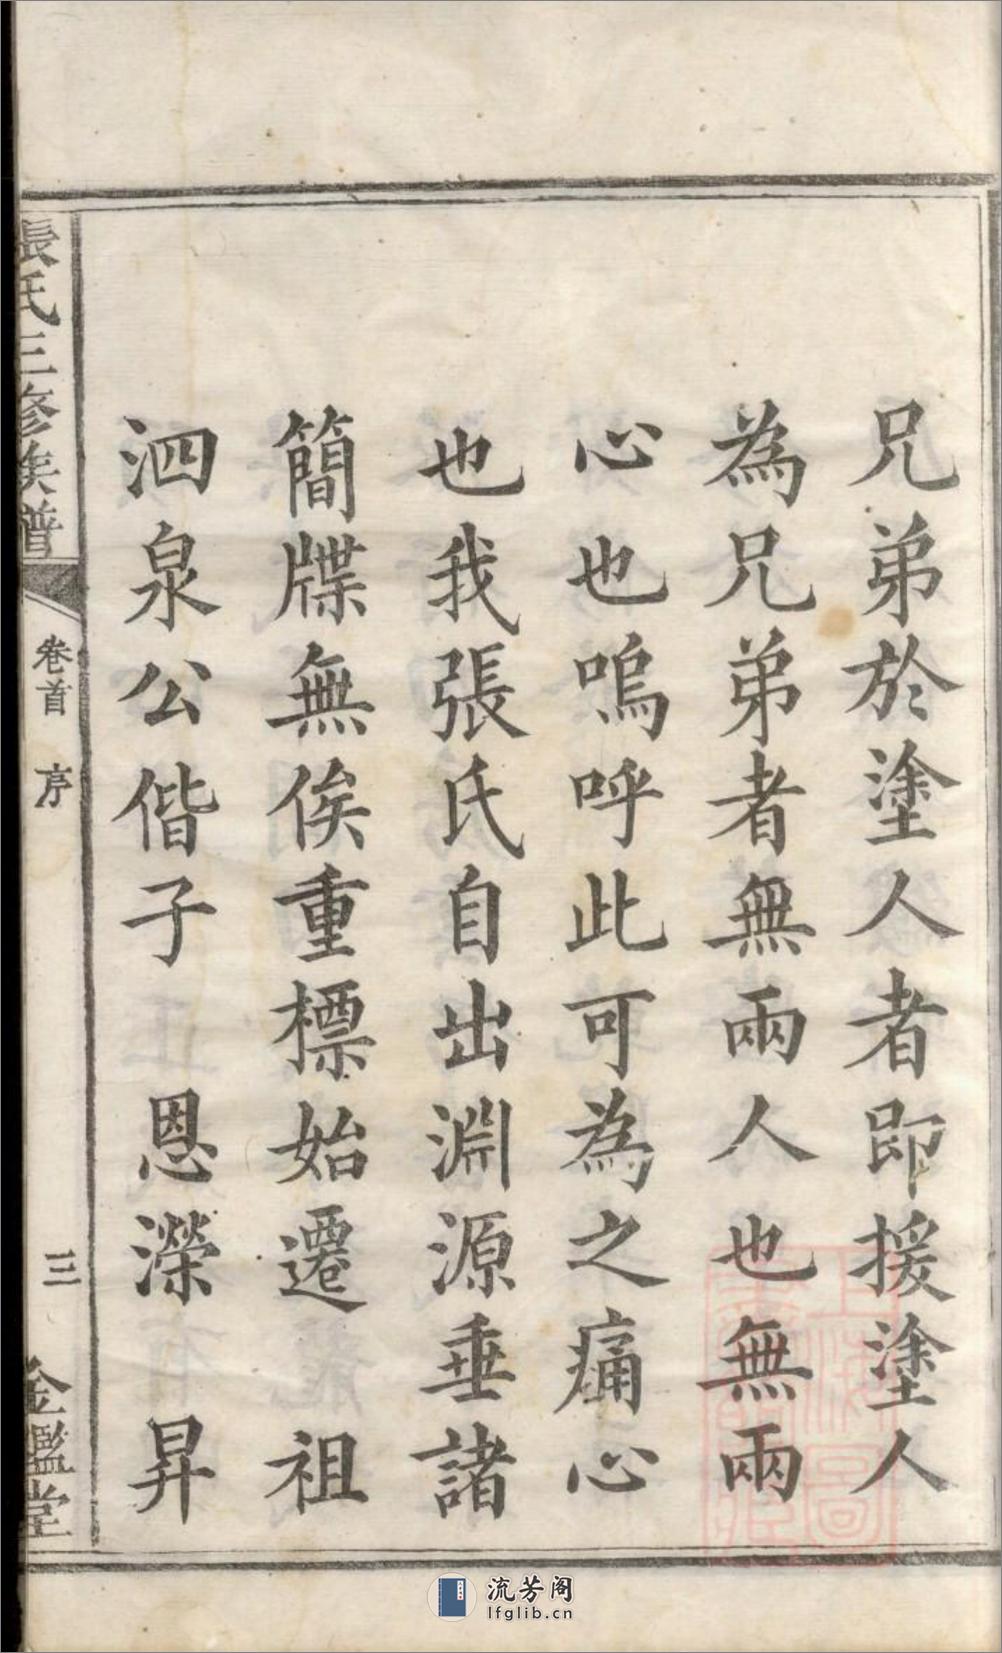 兄弟於塗人者即援塗人
為兄弟者無兩人也無兩
心也嗚呼此可為之痛心
也我張氏自出淵源垂諸
簡牒無俟重標始遷 祖
泗泉公偕子 恩濚 昇
張氏三修族譜
卷首 序
三
金鑑堂
流芳阁
lfglib.cn